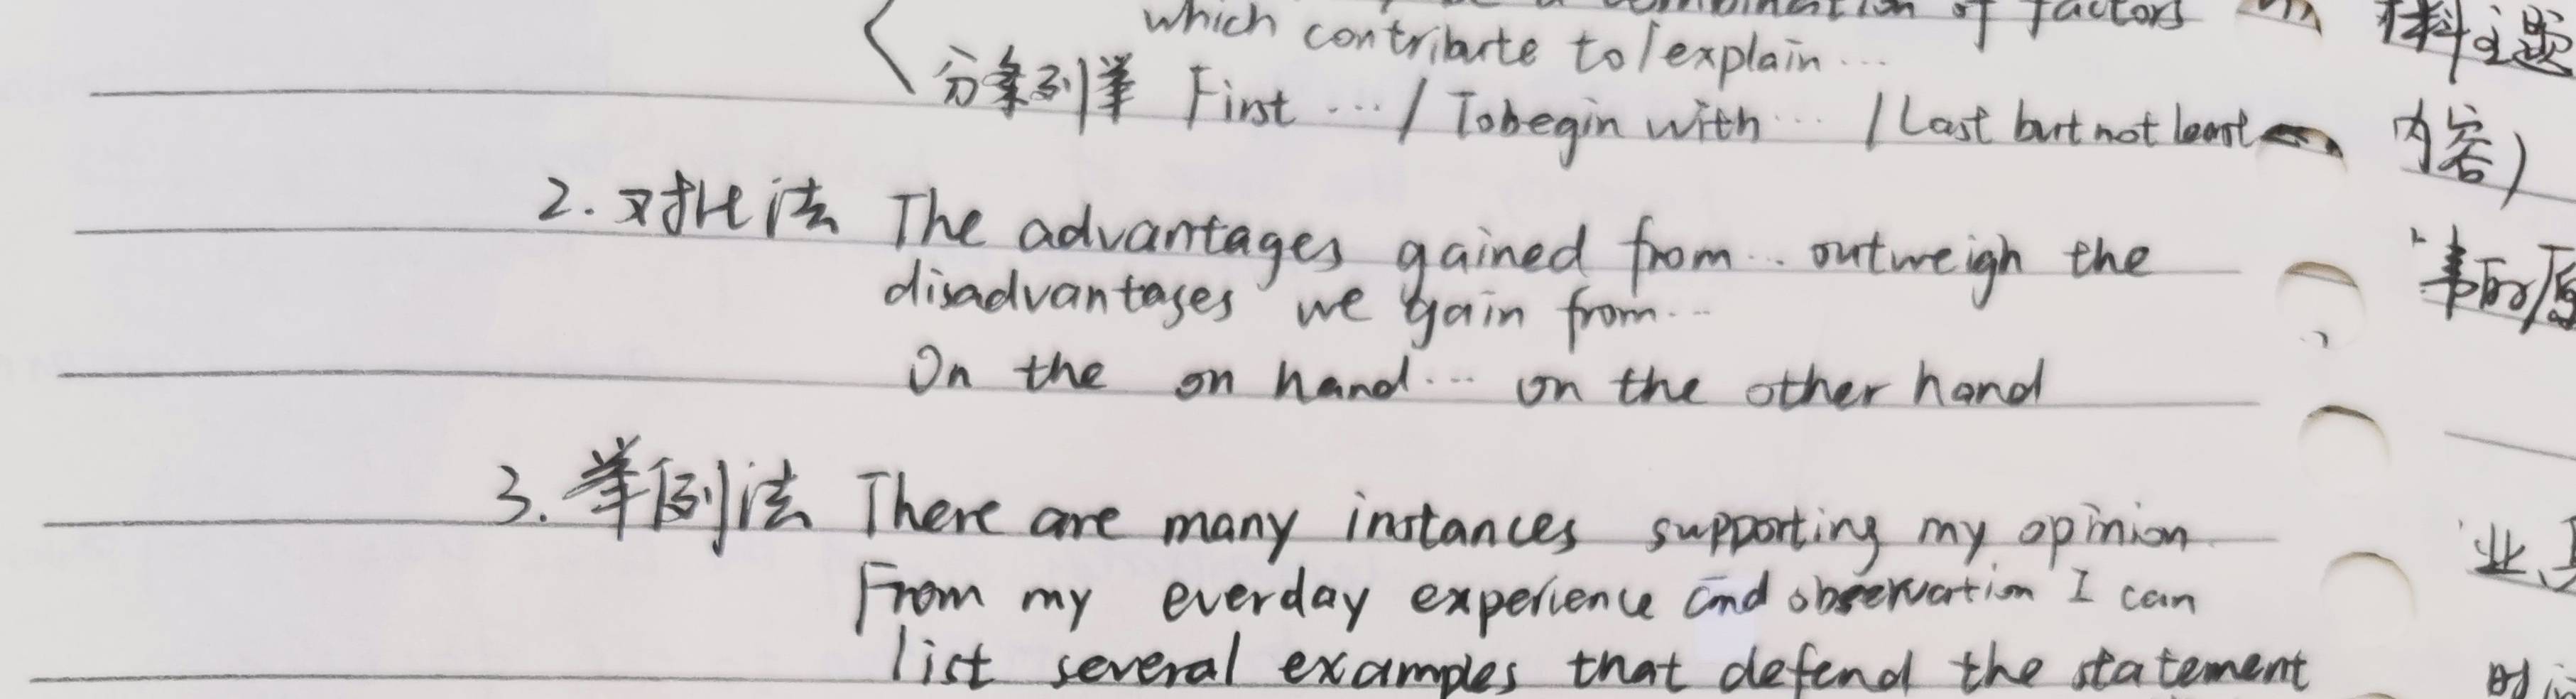 combination of factors
which contribute to/explain...
分条列举 First .../ To begin with... / Last but not least
2. 对比法 The advantages gained from... outweigh the
disadvantages we gain from...
On the on hand... on the other hand
3. 举例法 There are many instances supporting my opinion.
From my everday experience and observation I can
list several examples that defend the statement
料主题
内容)
业